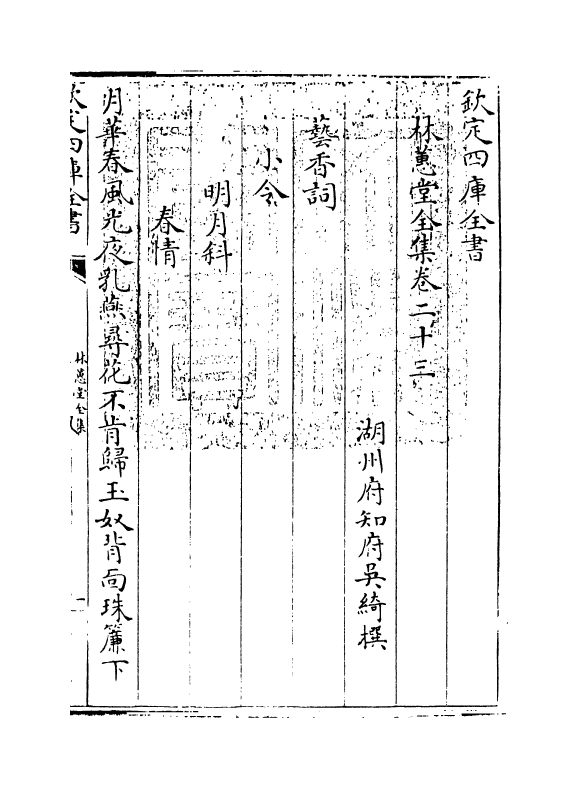 欽定四庫全書
林蕙堂全集卷二十三
湖州府知府吳綺撰
藝香詞
小令
明月斜
春情
月華春風光夜乳燕尋花不肯歸玉奴背面珠簾下
欽定四庫全書
林蕙堂全集
一